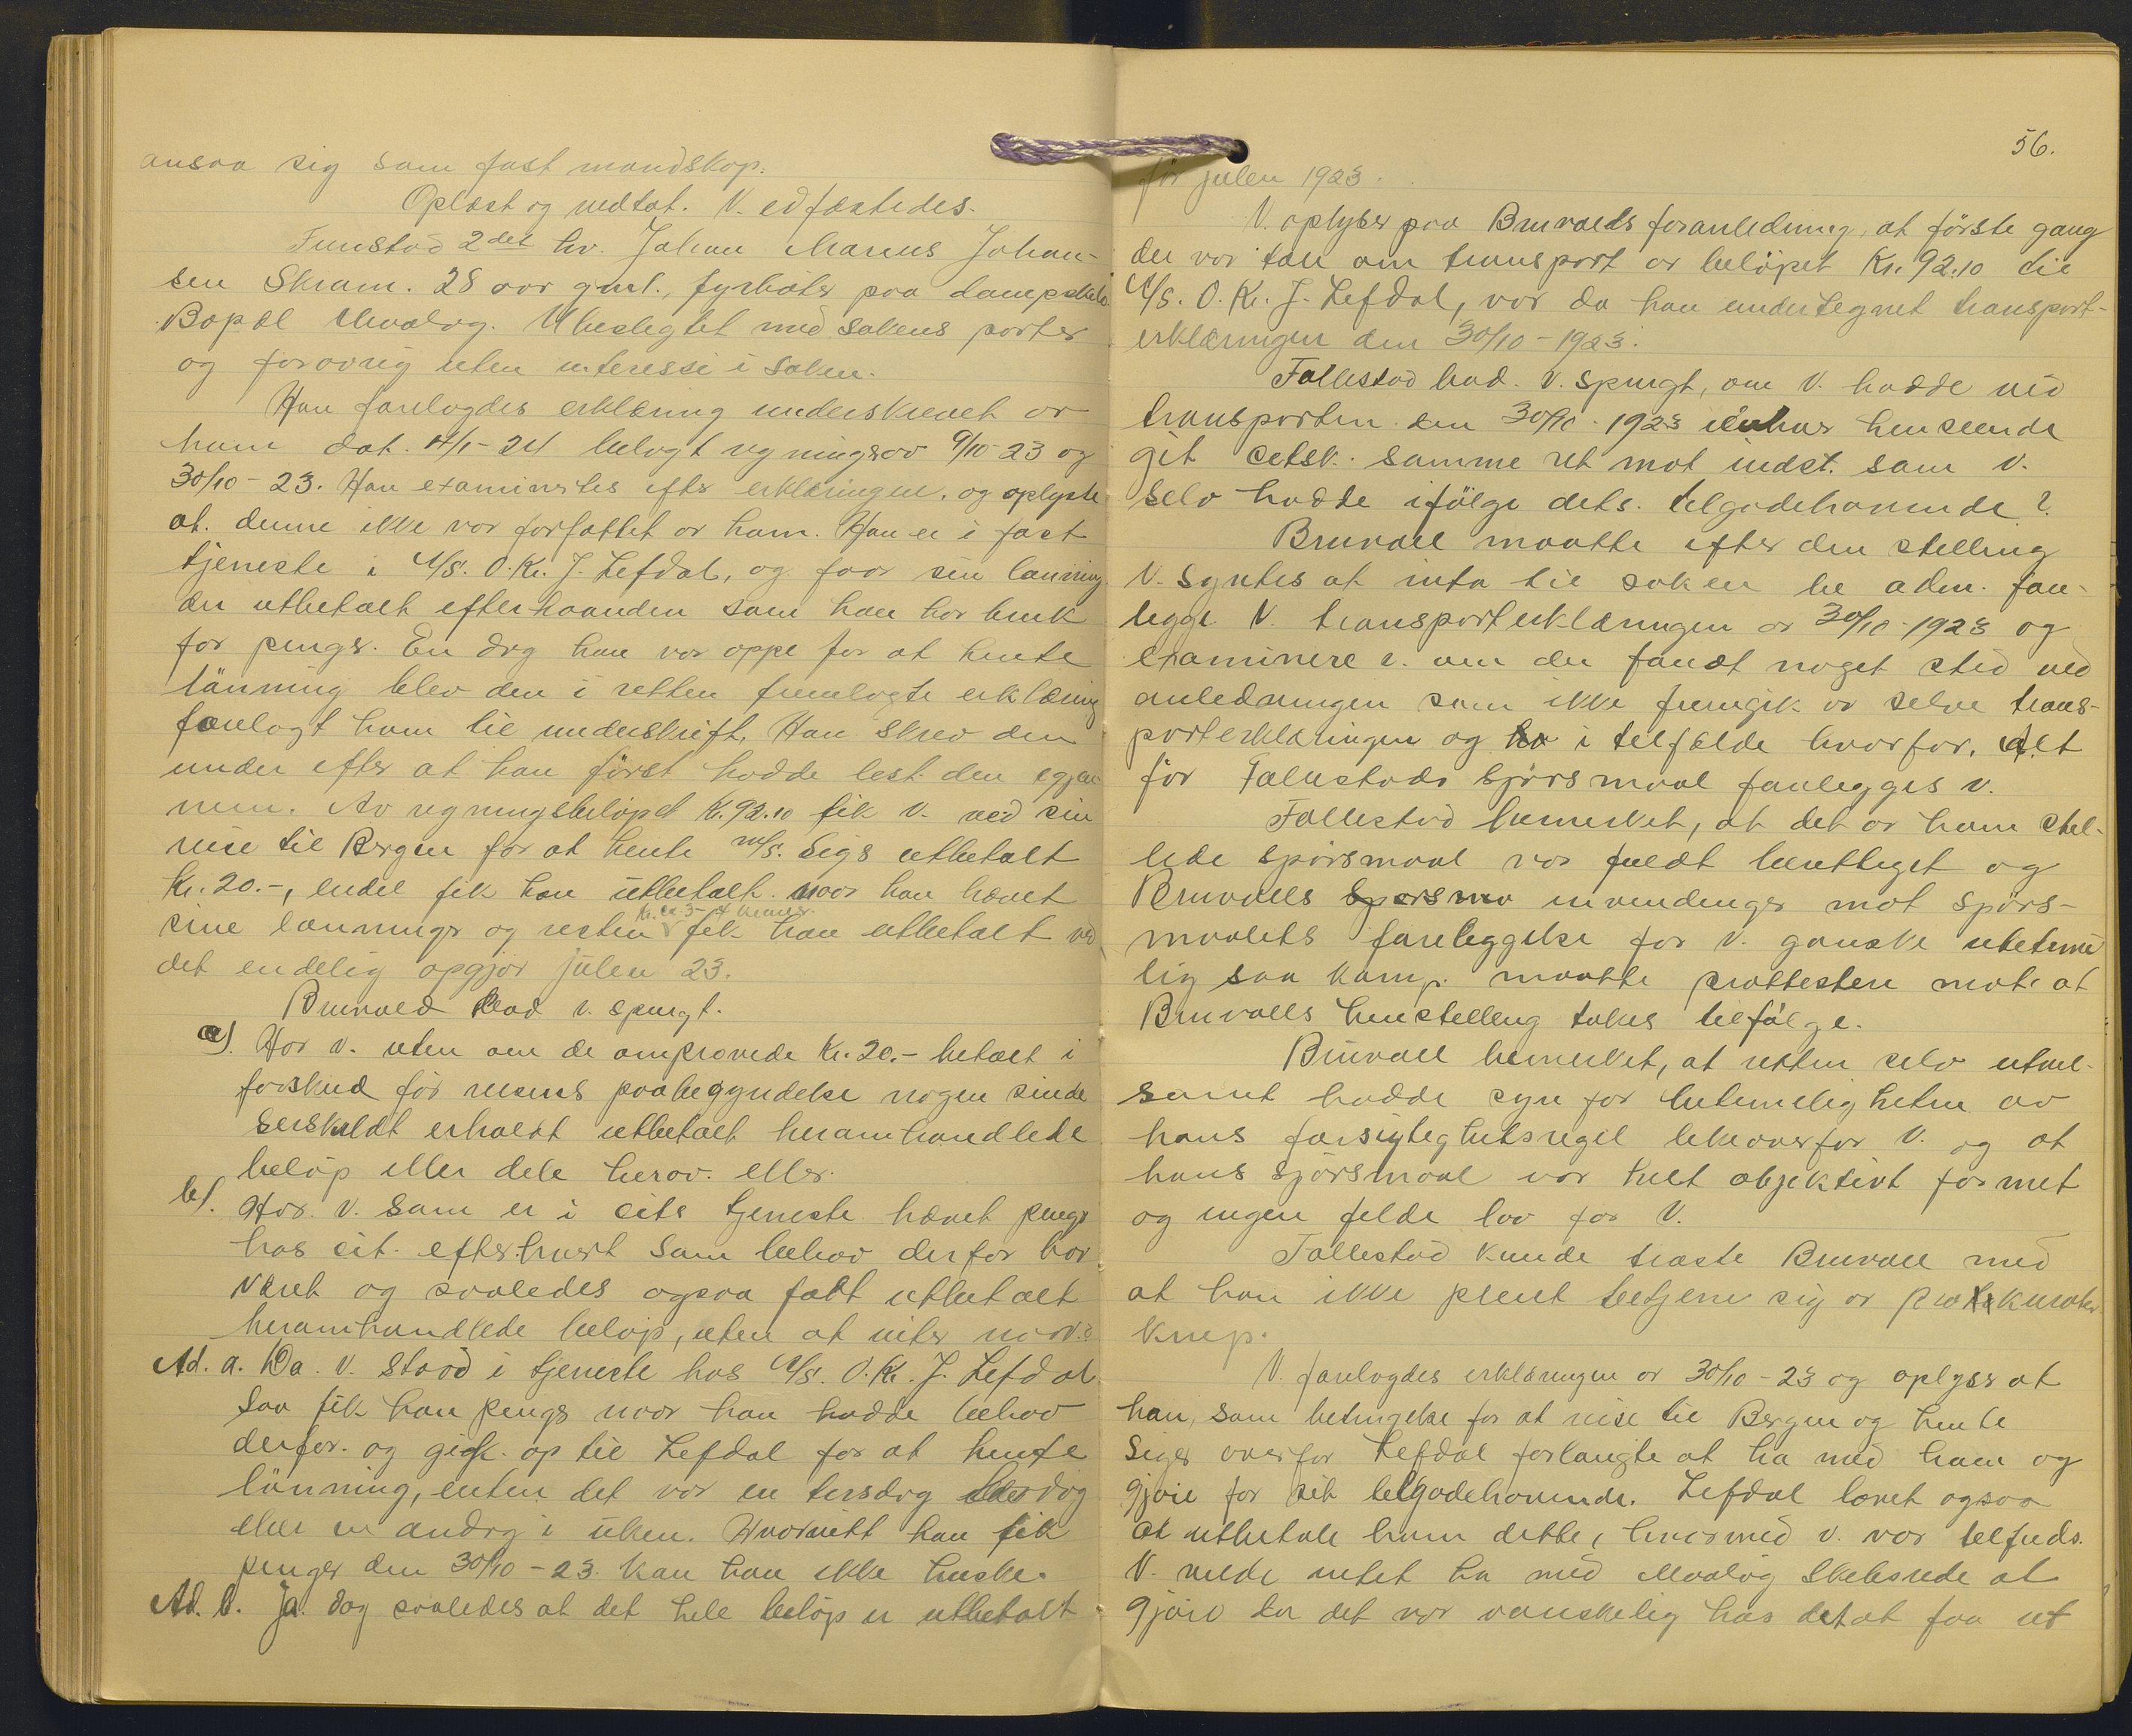 ansaa sig som fast mandskap.
Oplæst og vedtat. V. edfæstedes.
Fremstod 2det hv. Johan Marius Johan-
sen Skram. 28 aar gml., fyrbøter paa dampskib
Bopæl Maaløy. Ubeslegtet med sakens parter
og forøvrig uten interesse i saken.
Han forelagdes erklæring underskrevet av
ham dat. 14/1-24 belagt regningsav 9/10-23 og
30/10-23. Han examinertes efter erklæringen, og oplyste
at denne ikke var forfattet av ham. Han er i fast
tjeneste i A/S. O. Kr. J. Lefdal, og faar sin lønning
der utbetalt efterhaanden som han har bruk
for penger. En dag han var oppe for at hente
lønning blev den i retten fremlagte erklæring
forelagt ham til underskrift. Han skrev den
under efter at han først hadde lest den igjen-
nem. Av regningsbeløpet Kr. 92.10 fik V. ved sin
reise til Bergen for at hente m/s. Sigs utbetalt
Kr. 20.-, endel fik han utbetalt naar han hævet
sine lønninger og resten kr. ca 3-4 kroner. fik han utbetalt ved
det endelig opgjør julen 23.
Bruvold bad v. spurgt.
a). Har v. uten om de omprovede Kr. 20.- betalt i
forskud før reisens paabegyndelse nogen sinde
særskildt erholdt utbetalt heromhandlede
beløp eller dele herav. eller.
b). Har v. som er i cits tjeneste hævet penger
hos cit. efterhvert som behov derfor har
været og saaledes ogsaa faat utbetalt
heromhandlede beløp, uten at vite naar?
Ad. a. Da v. stood i tjeneste hos A/S. O. Kr. J. Lefdal
saa fik han penger naar han hadde behov
derfor. og gik op til Lefdal for at hente
lønning, enten det var en tirsdag
eller en andag i uken. Hvorvidt han fik
penger den 30/10-23 kan han ikke huske.
Ad. b. Ja. dog saaledes at det hele beløp er utbetalt
56.
før julen 1923.
V. oplyser paa Bruvolds foranledning, at første gang
der var tale om transport av beløpet Kr. 92.10 til
A/S. O. Kr. J. Lefdal, var da han undertegnet transport-
erklæringen den 30/10-1923.
Follestad bad. V. spurgt, om V. hadde ved
transporten den 30/10-1923 i enhver henseende
git citsk. samme ret mot indst. som V.
selv hadde ifølge dets. tilgodehavende?
Bruvoll maatte efter den stilling
V. syntes at inta til saken be adm. fore-
legge V. transporterklæringen av 30/10-1923 og
examinere v. om der fandt noget sted ved
anledningen som ikke fremgik av selve trans-
porterklæringen og i tilfælde hvorfor. Alt
før Follestads spørsmaal forelegges v.
Follestad bemerket, at det av ham stil-
lede spørsmaal var fuldt berettiget og
Bruvolls innvendinger mot spørs-
maalets foreleggelse for V. ganske utebtime
lig saa komp. maatte prottestere mot at
Bruvolls henstilling tokes tilfølge.
Bruvoll bemerket, at retten selv utvil-
somt hadde syn for betimeligheten av
hans forsigtighetsregel likeoverfor V. og at
hans spørsmaal var helt objektivt formet
og ingen felde lov for V.
Follestad kunde trøste Bruvoll med
at han ikke pleiet betjene sig av prokurator
knep.
V. forelagdes erklæringen av 30/10-23 og oplyser at
han, som betingelse for at reise til Bergen og hente
Siger overfor Lefdal forlangte at ha med ham og
gjøre for sit tilgodehavende. Lefdal lovet ogsaa
at utbetale ham dette, hvormed v. var tilfreds.
V. vilde intet ha med Maaløy Skibsrede at
gjøre da det var vanskelig hos det at faa ut